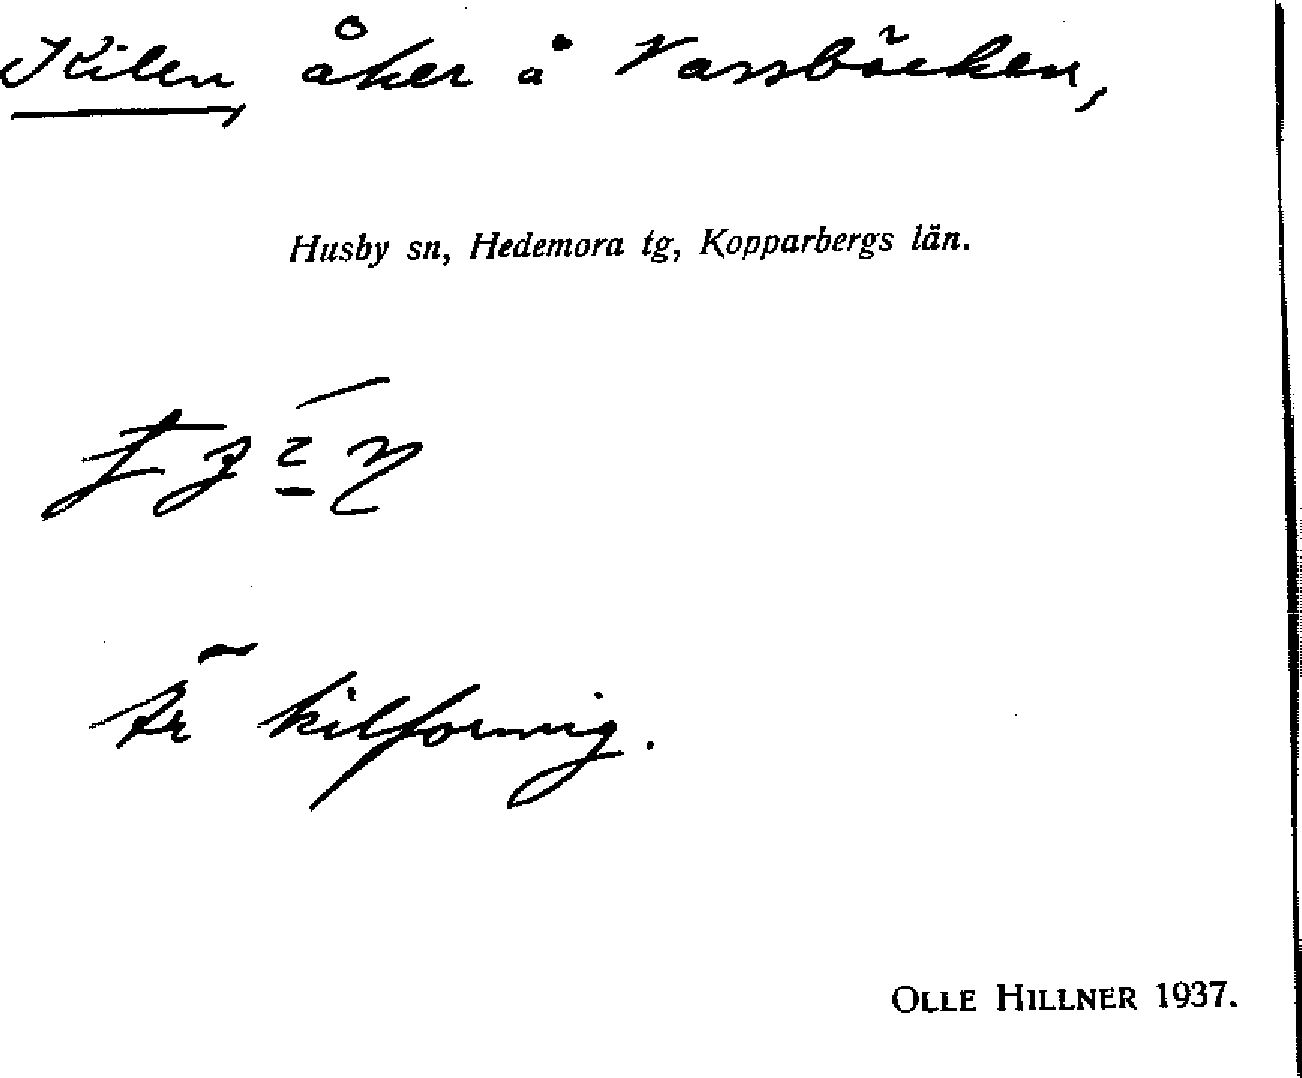 Kilen, åker å Vassbäcken,
Husby sn, Hedemora tg, Kopparbergs län.
Är kilformig.
OLLE HILLNER 1937.